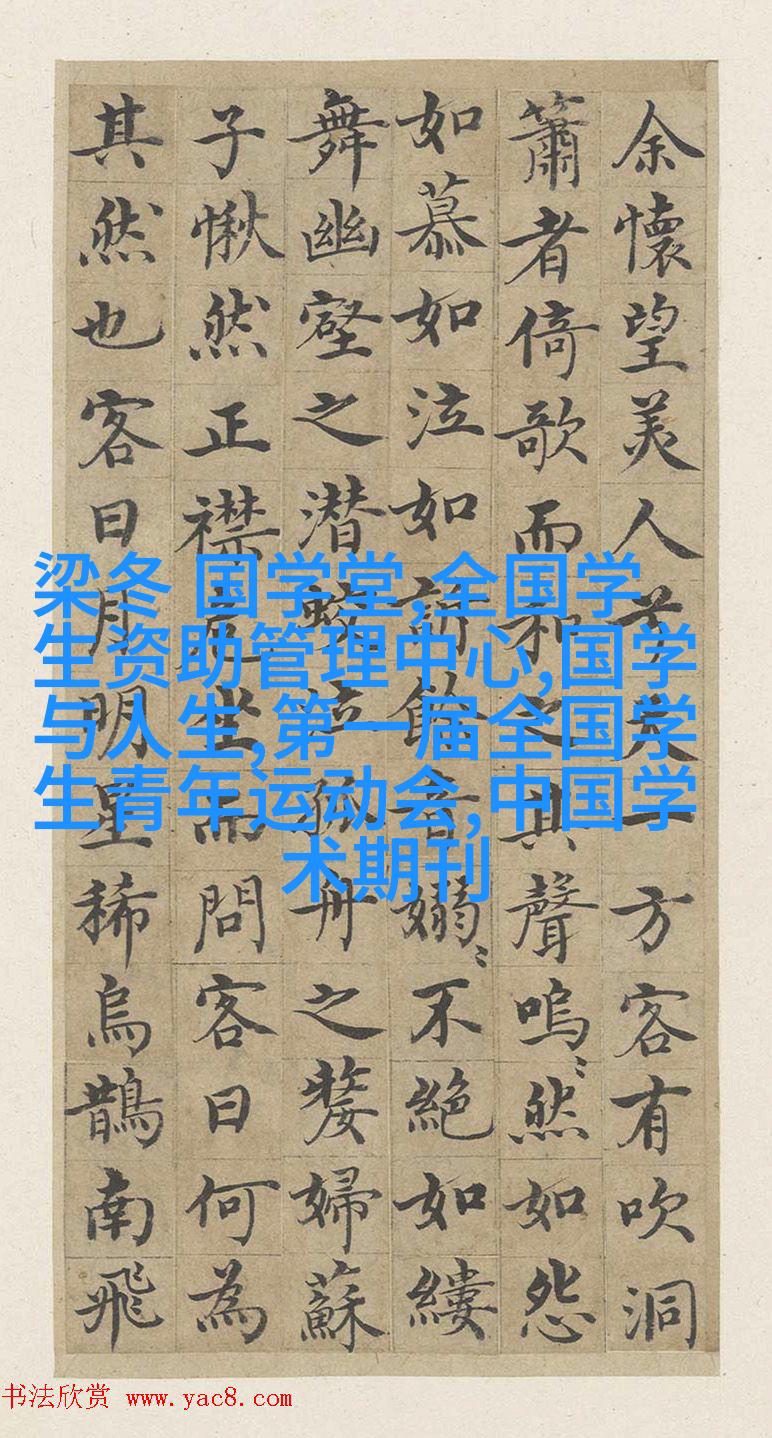 余懷望美人兮天一方客有吹洞
簫者倚歌而和之其聲嗚〻然如怨
如慕如泣如訴餘音嫋〻不絕如縷
舞幽壑之潜蛟泣孤舟之嫠婦蘇
子愀然正襟危坐而問客曰何為
其然也客曰月明星稀烏鵲南飛
梁冬 国学堂,全国学
生资助管理中心,国学
与人生,第一届全国学
生青年运动会,中国学
术期刊
书法欣赏 www.yac8.com